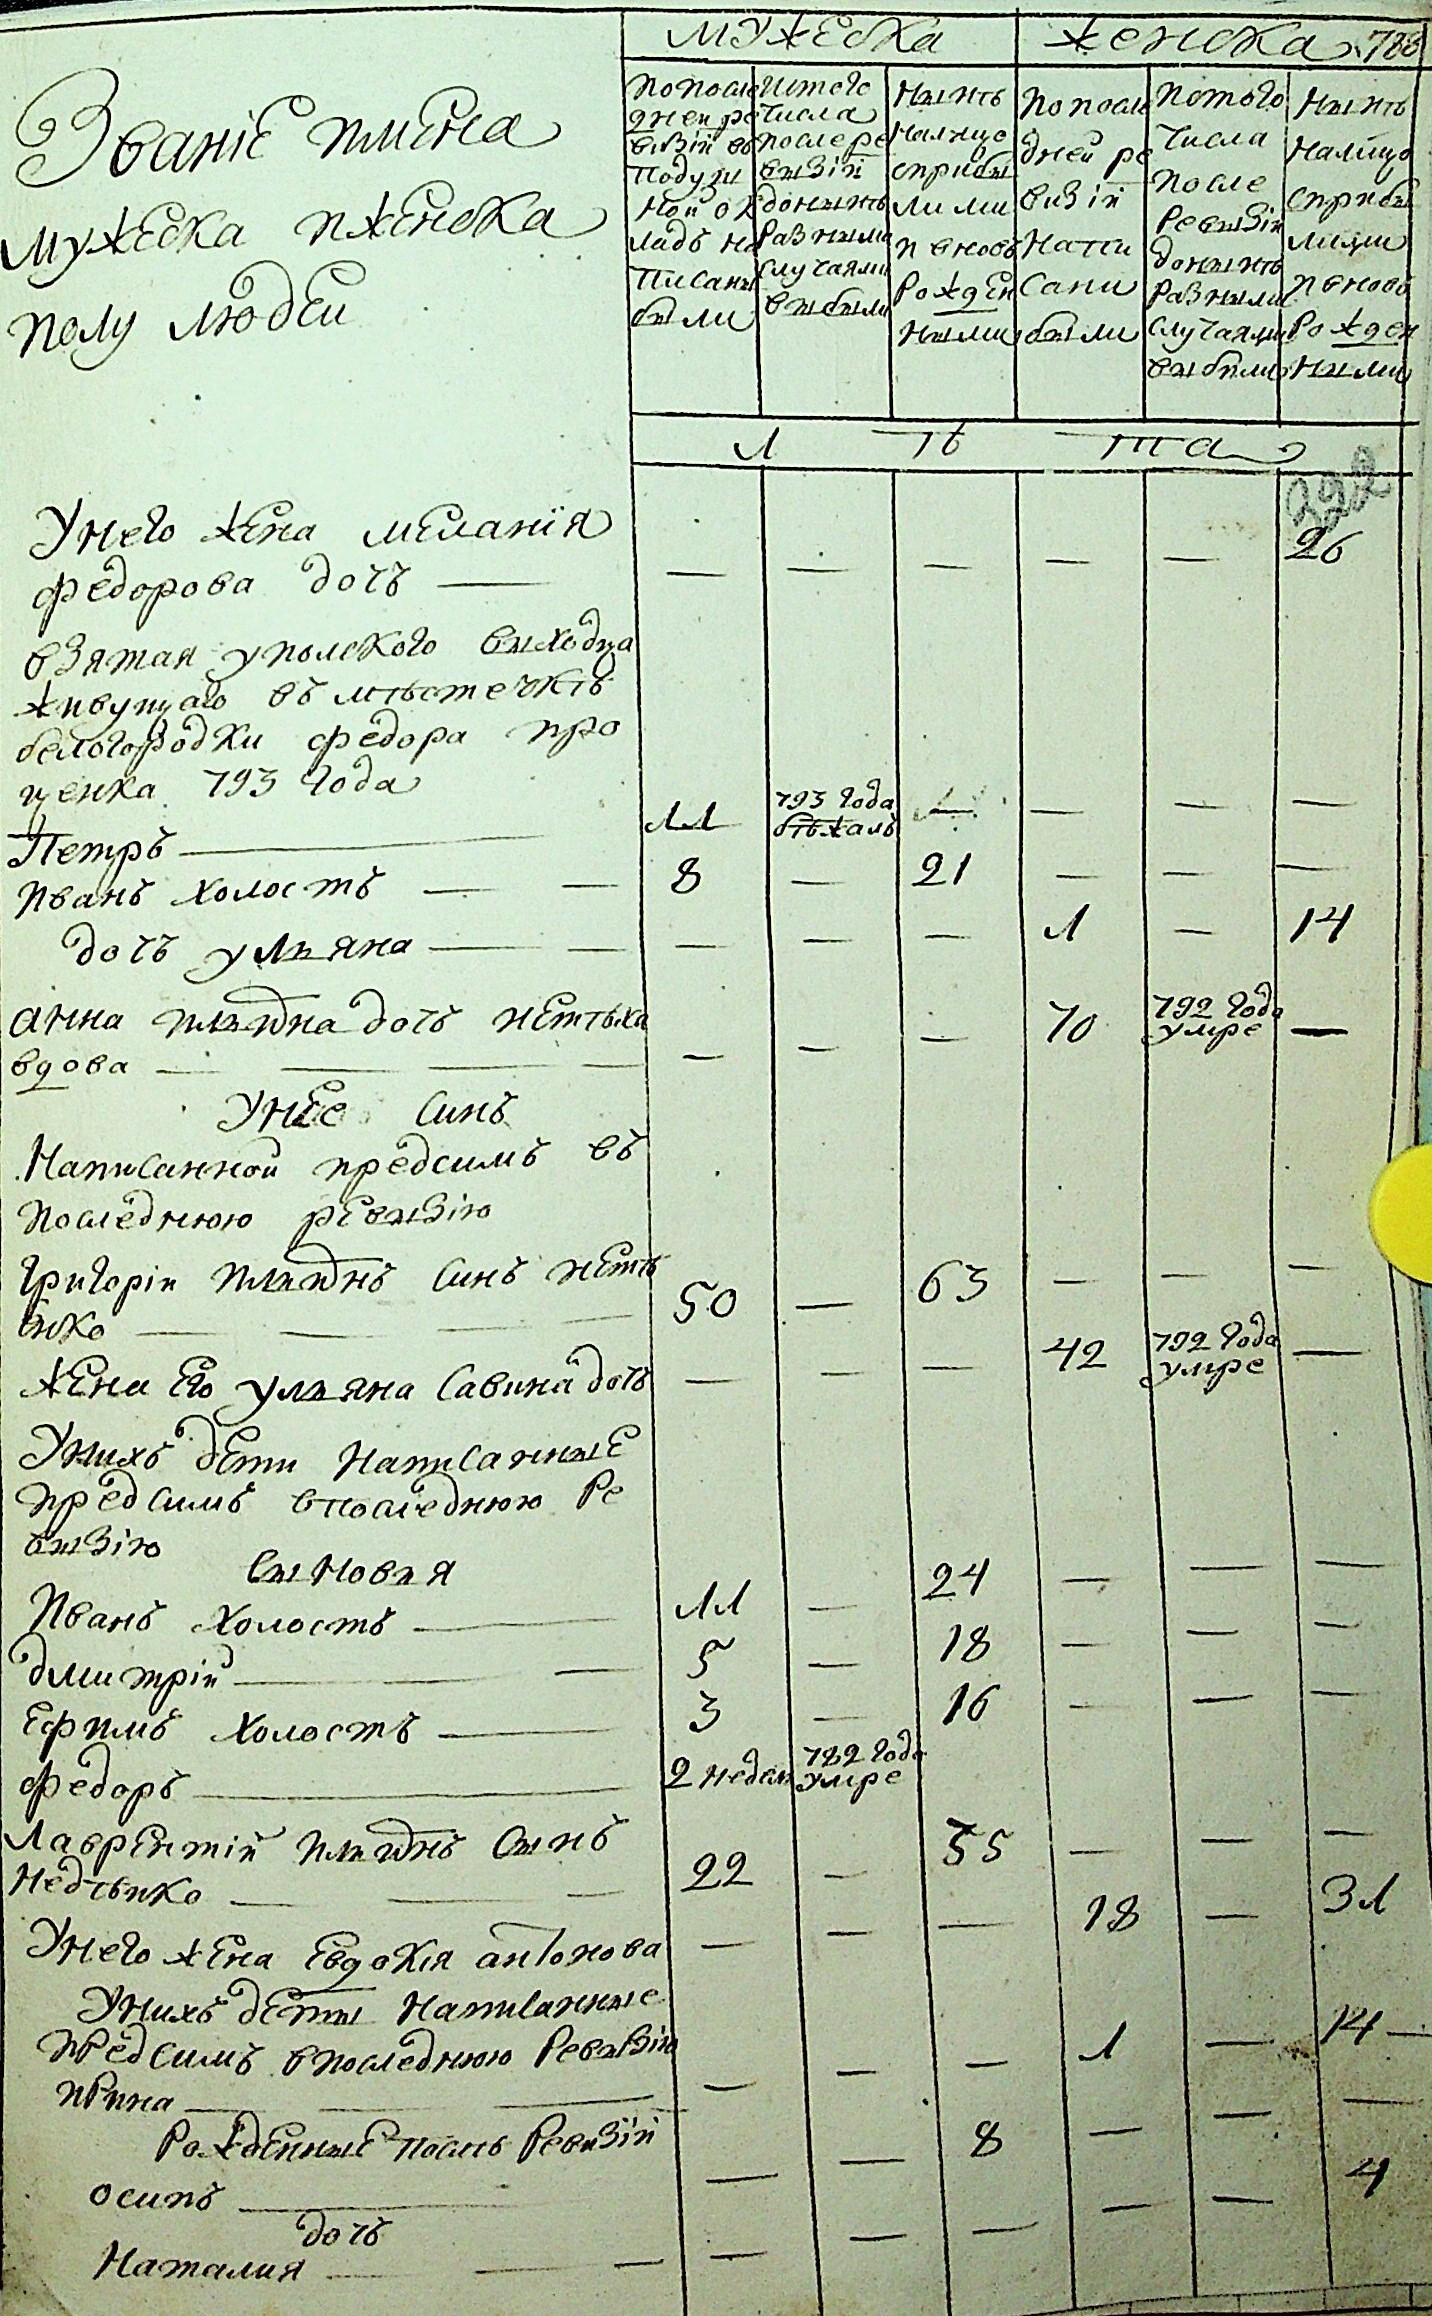 МУЖЕСКА
ЖЕНСКА
Званіе пимена
мужеска пженска
полу людеи
попосле
днеи ре
визіи въ
подуш
нои ок
ладъ на
писаны
были
истого
числа
послере
визіи
донынѣ
разныма
случаями
выбыли
нынѣ
налицо
сприбы
лими
пвновъ
рожден
ными
попосле
днеи ре
визіи
напи
саны
были
потого
числа
после
ревизіи
донынѣ
разными
случаями
выбыли
нынѣ
налицо
сприбы
лими
пвновъ
рожден
ными
л ѣ та
222
Унего жена меланія
федорова дочъ — — — — — — 26
взятая уполского выходца
живущаго въ мѣстечкѣ
белогородки федора про
ценка 793 года
Петръ — 11 793 года бѣжалъ — — — —
пванъ холостъ — — 8 — 21 — — —
дочъ ульяна — — — — — 1 — 14
анна дочъ
вдова — — — — — — — 70 792 года умре —
Унее синъ
написаннои предсимъ въ
последнюю ревизію
григоріи синъ
енко — — — — 50 — 63 — — —
жена его ульяна савина дочъ — — — 42 792 года умре —
Унихъ дети написанные
предсимъ впоследнюю ре
визію
сыновья
Пванъ холостъ — 11 — 24 — — —
дмитріи — — 5 — 18 — — —
ефимъ холостъ — 3 — 16 — — —
федоръ — 2 недели 782 года умре
Лаврентіи сынъ
недѣпко — — — 22 — 35 — — —
Унего жена евдокія антонова — — — 18 — 31
Унихъ деты написанные
предсимъ впоследнюю ревизію
прина — — — — — — 1 — 14 —
рожденные послѣ ревизіи
осипъ — — — 8 — — —
дочъ
Наталия — — — — — — — — 4